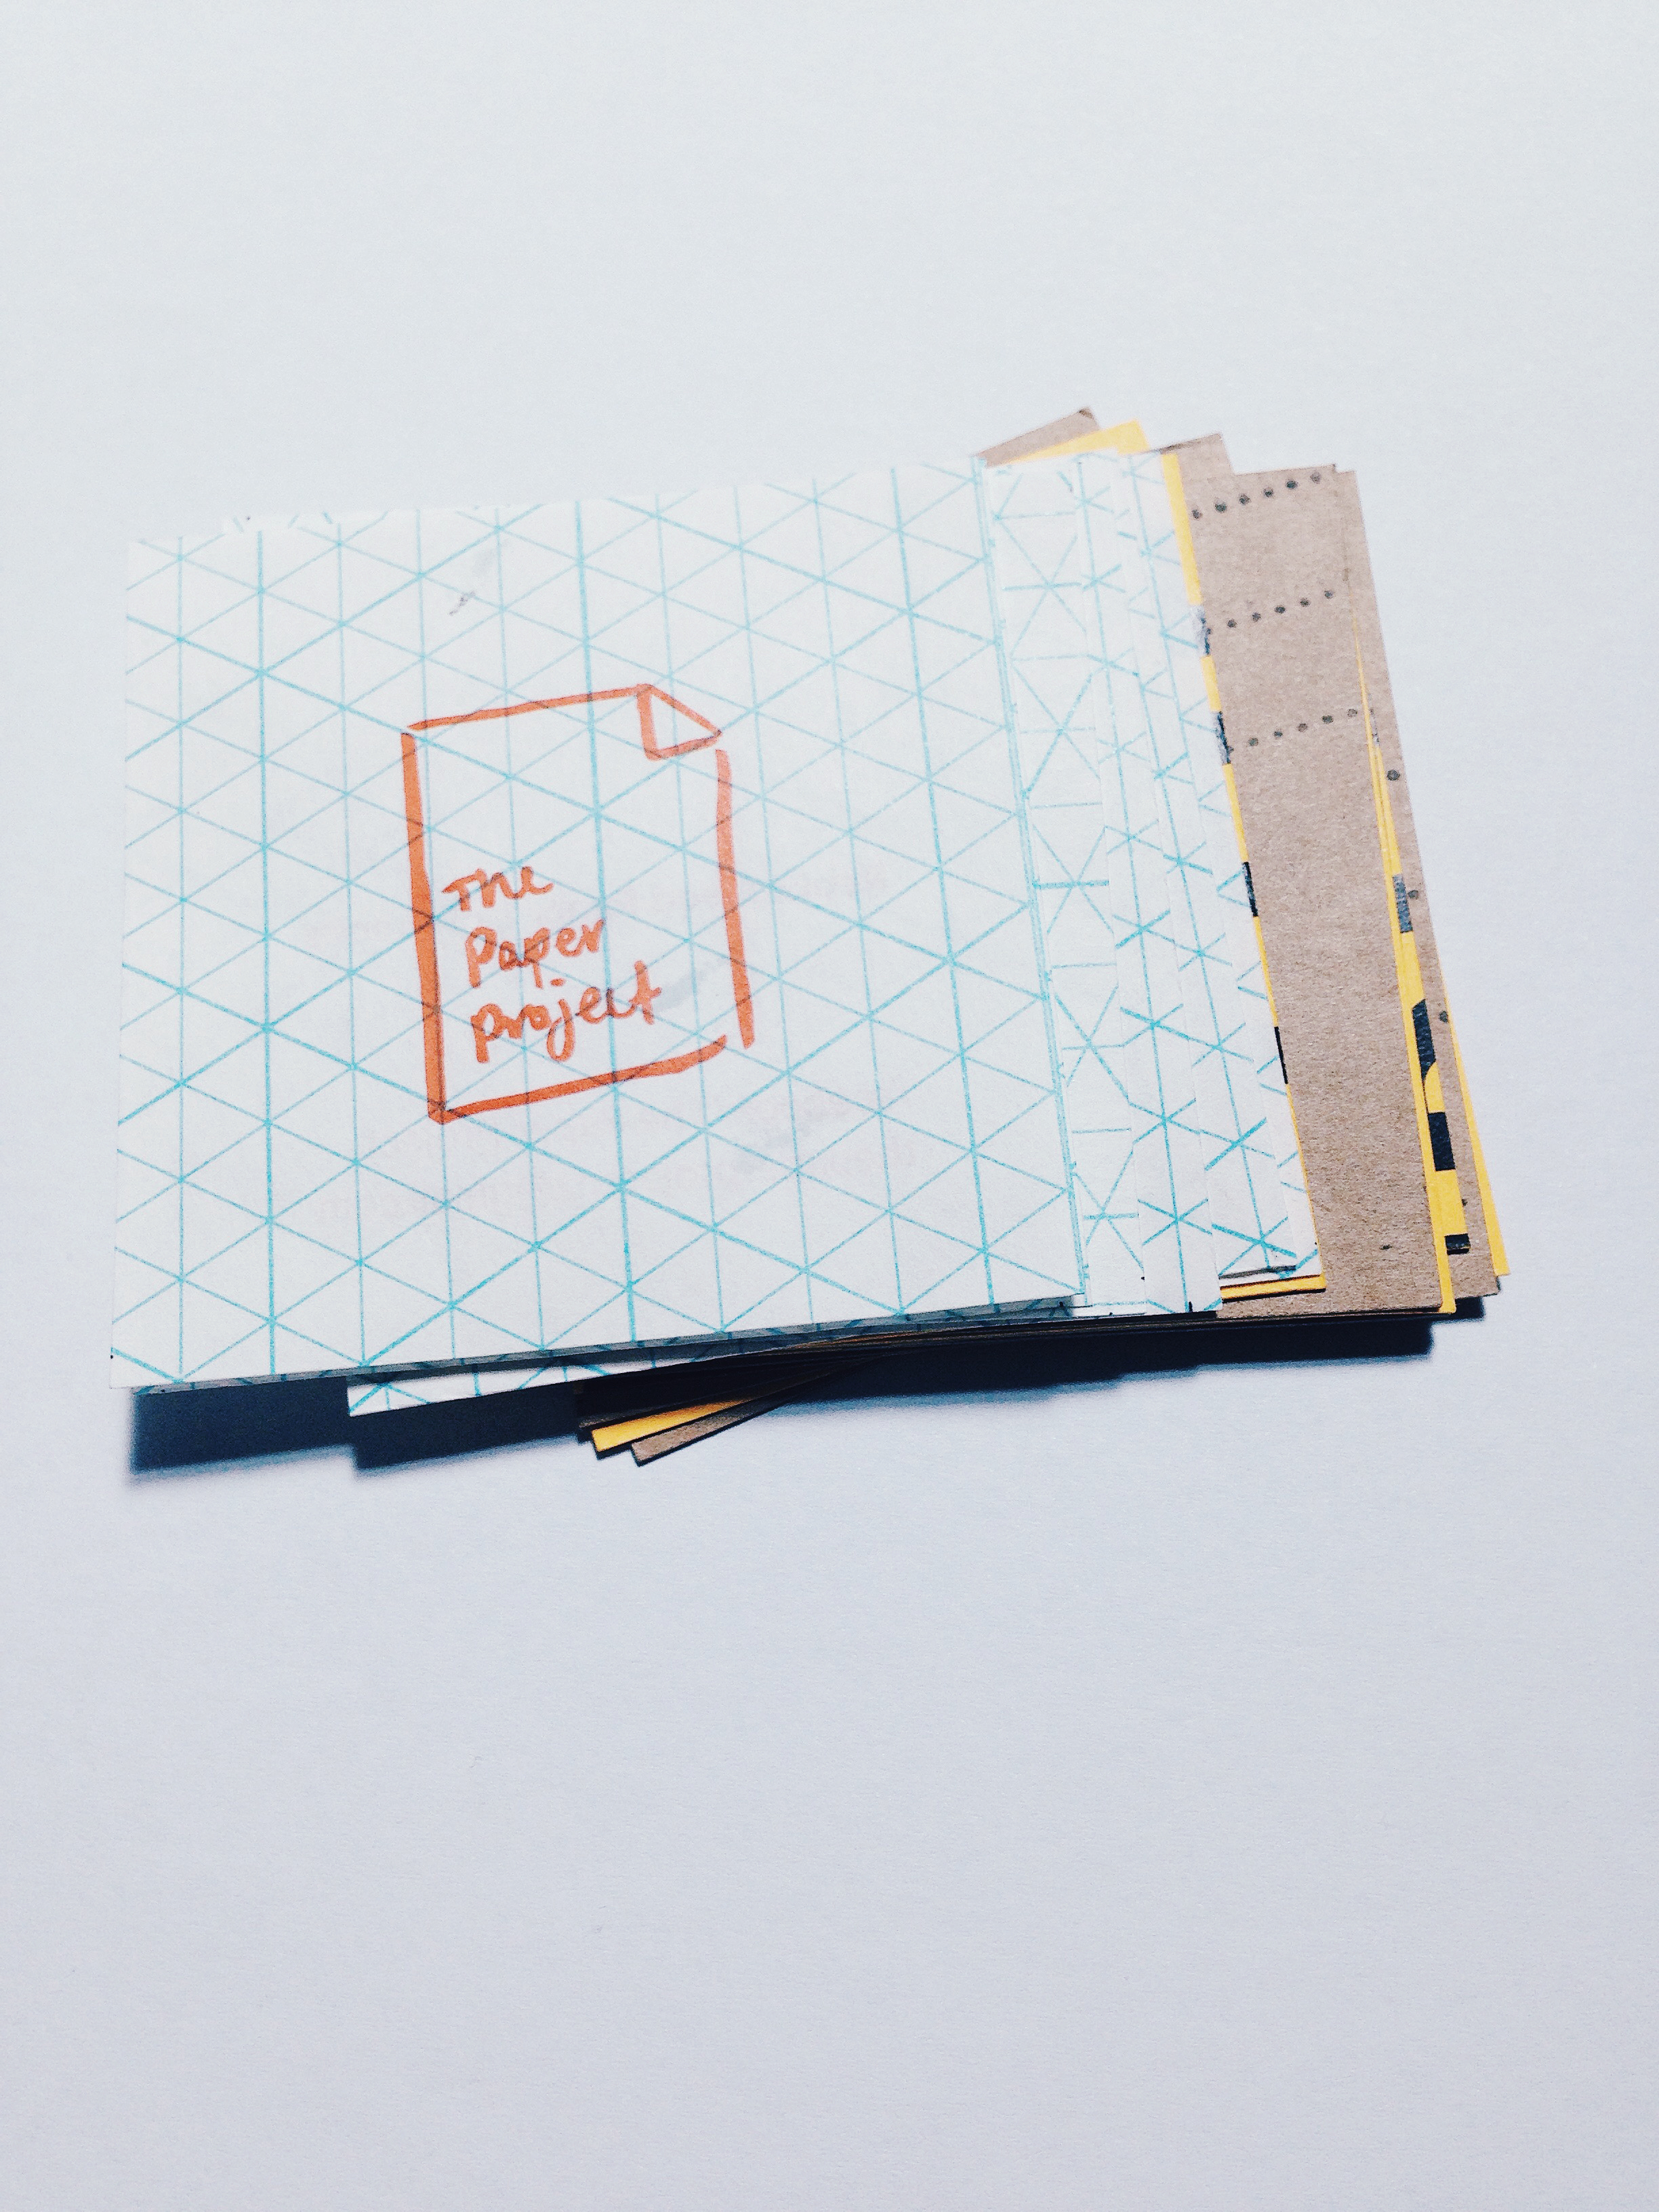 The
Paper
project